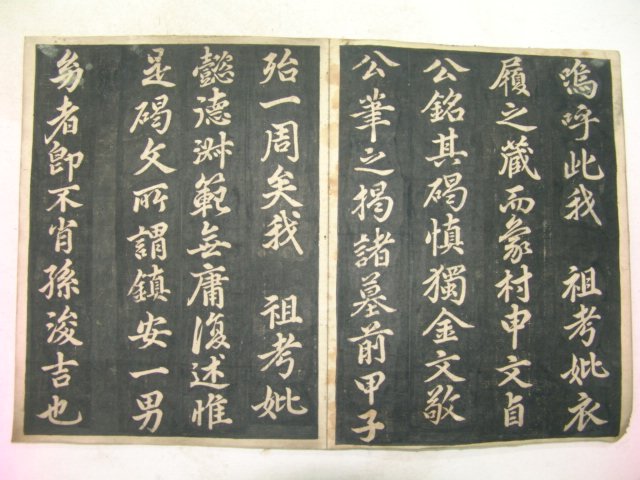 嗚呼此我 祖考妣衣
履之藏而象村申文貞
公銘其碣愼獨金文敬
公筆之揭諸墓前甲子
殆一周矣我 祖考妣
懿德淑範無庸復述惟
是碣文所謂鎮安一男
多者即不肖孫浚吉也